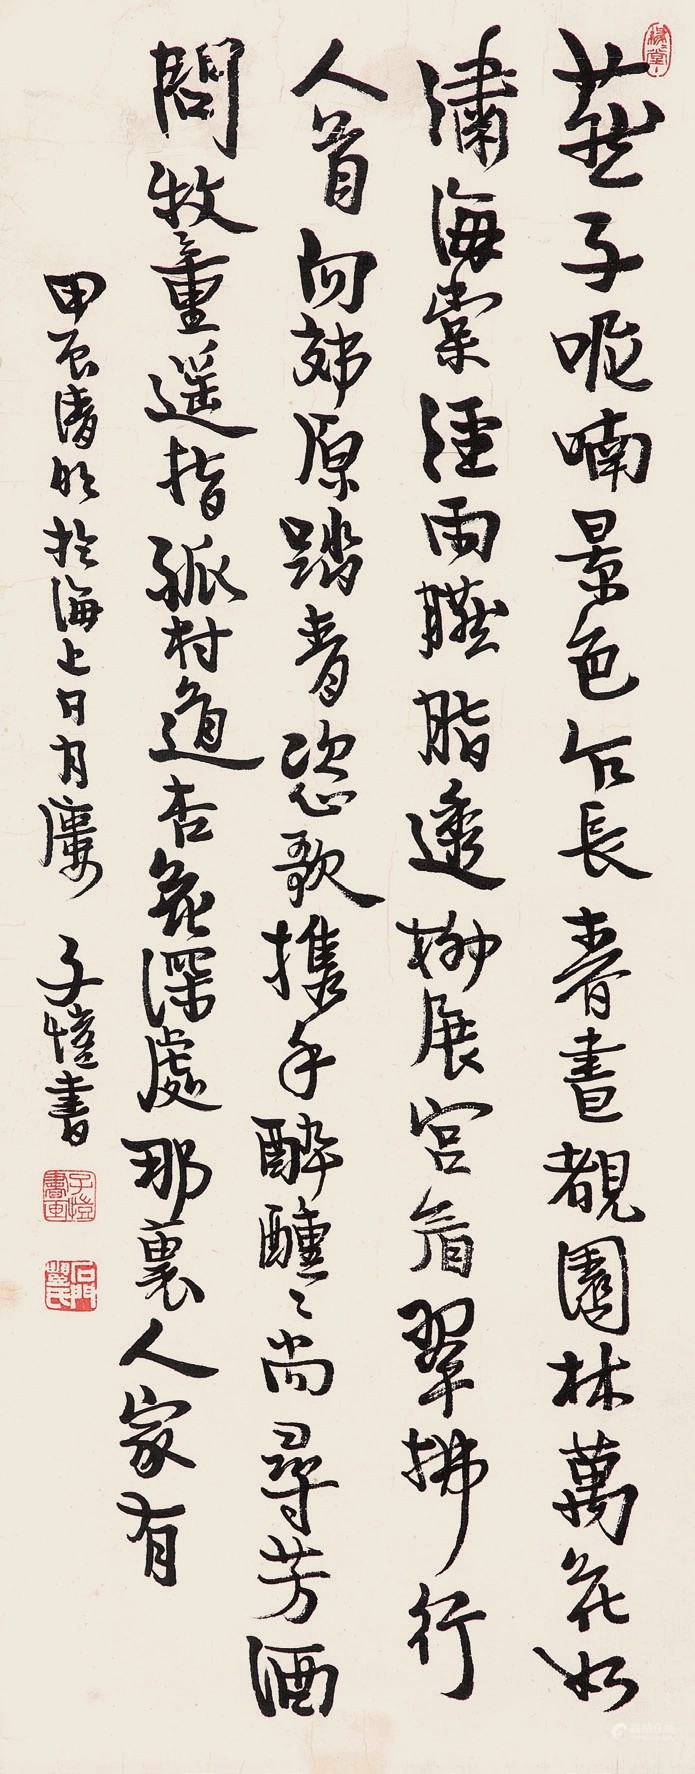 緣緣堂
燕子呢喃景色乍長春晝覩園林萬花如
繡海棠經雨臙脂透柳展宮眉翠拂行
人首向郊原踏青恣歌携手醉醺〻尚尋芳酒
問牧童遥指孤村道杏花深處那裏人家有
甲辰清明於海上日月樓 子愷書
子愷書畫
石門豐氏